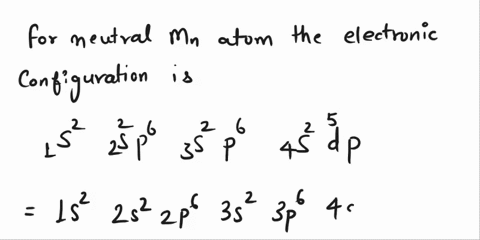 for neutral Mn atom the electronic
Configuration is
1S² 2S²p⁶ 3S²p⁶ 4S²d⁵p
= 1s² 2s² 2p⁶ 3s² 3p⁶ 4